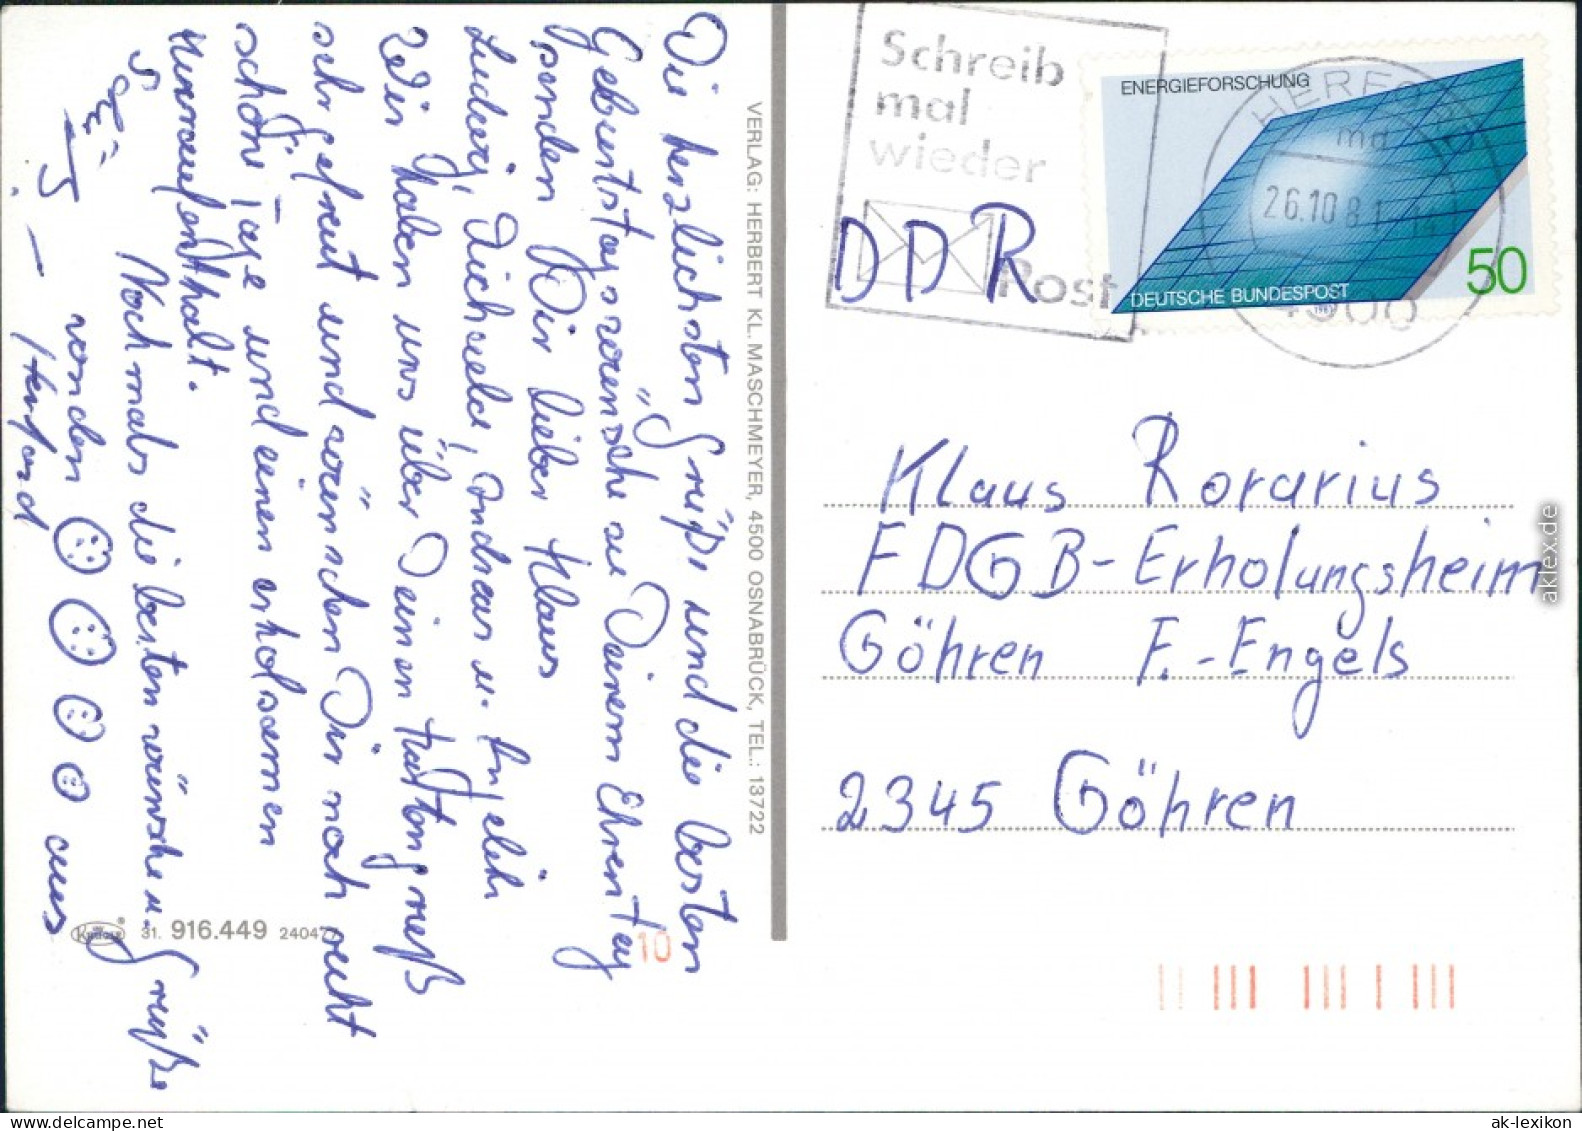 Die herzlichsten Grüße und die besten
Geburtstagswünsche zu Deinem Ehrentag
senden Dir lieber Klaus
Ludwig, Andreas u.
Wir haben uns über Deinen Kartengruß
sehr gefreut und wünschen Dir noch recht
schöne Tage und einen erholsamen
Nochmals die besten wünsche u. Grüße
von den aus
Herford
VERLAG: HERBERT KL. MASCHMEYER, 4500 OSNABRÜCK, TEL.: 13722
KRÜGER
31. 916.449 240477
10
Schreib
mal
wieder
Post
DDR
ENERGIEFORSCHUNG
DEUTSCHE BUNDESPOST
50
1981
HERFORD
md
26.10.81
4900
Klaus Rorarius
FDGB-Erholungsheim
Göhren F.-Engels
2345 Göhren
aklex.de
ak-lexikon